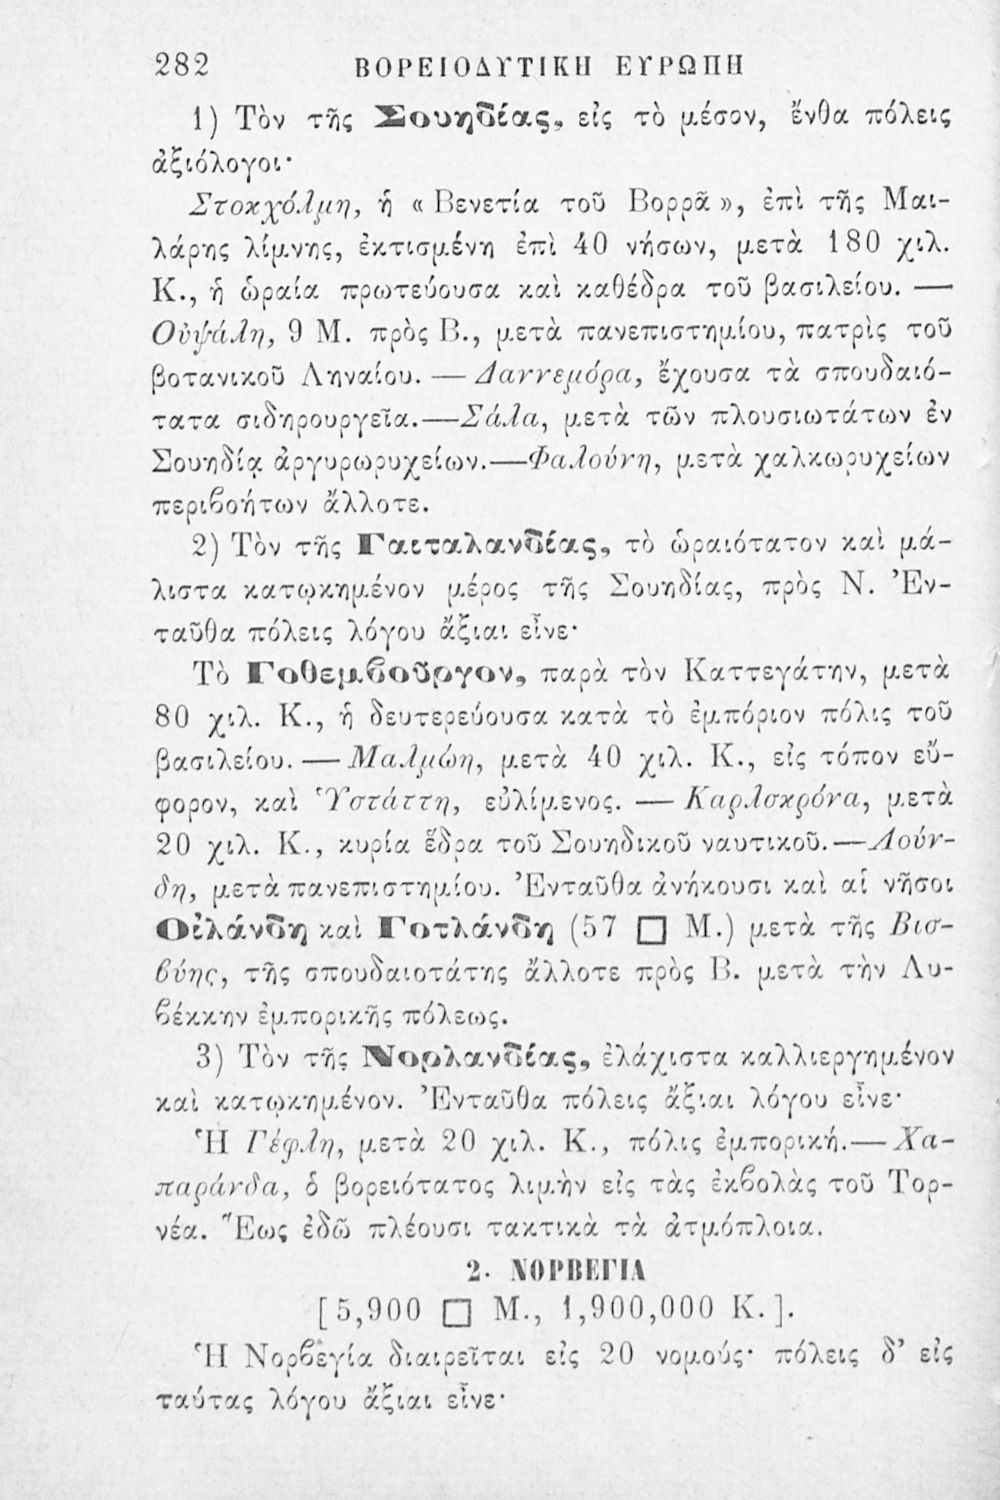 282 ΒΟΡΕΙΟΔΥΤΙΚΗ ΕΥΡΩΠΗ
1) Τὸν τῆς Σουηδίας, εἰς τὸ μέσον, ἔνθα πόλεις
ἀξιόλογοι·
Στοκχόλμη, ἡ « Βενετία τοῦ Βορρᾶ », ἐπὶ τῆς Μαι-
λάρης λίμνης, ἐκτισμένη ἐπὶ 40 νήσων, μετὰ 180 χιλ.
Κ., ἡ ὡραία πρωτεύουσα καὶ καθέδρα τοῦ βασιλείου. —
Οὐψάλη, 9 Μ. πρὸς Β., μετὰ πανεπιστημίου, πατρὶς τοῦ
βοτανικοῦ Ληναίου. — Δαννεμόρα, ἔχουσα τὰ σπουδαιό-
τατα σιδηρουργεῖα.—Σάλα, μετὰ τῶν πλουσιωτάτων ἐν
Σουηδίᾳ ἀργυρωρυχείων.—Φαλούνη, μετὰ χαλκωρυχείων
περιβοήτων ἄλλοτε.
2) Τὸν τῆς Γαιταλανδίας, τὸ ὡραιότατον καὶ μά-
λιστα κατῳκημένον μέρος τῆς Σουηδίας, πρὸς Ν. Ἐν-
ταῦθα πόλεις λόγου ἄξιαι εἶνε·
Τὸ Γοθεμβοῦργον, παρὰ τὸν Καττεγάτην, μετὰ
80 χιλ. Κ., ἡ δευτερεύουσα κατὰ τὸ ἐμπόριον πόλις τοῦ
βασιλείου. — Μαλμώη, μετὰ 40 χιλ. Κ., εἰς τόπον εὔ-
φορον, καὶ Ὑστάττη, εὐλίμενος. — Καρλσκρόνα, μετὰ
20 χιλ. Κ., κυρία ἕδρα τοῦ Σουηδικοῦ ναυτικοῦ.—Λούν-
δη, μετὰ πανεπιστημίου. Ἐνταῦθα ἀνήκουσι καὶ αἱ νῆσοι
Οἰλάνδη καὶ Γοτλάνδη (57 □ Μ.) μετὰ τῆς Βισ-
βύης, τῆς σπουδαιοτάτης ἄλλοτε πρὸς Β. μετὰ τὴν Λυ-
βέκκην ἐμπορικῆς πόλεως.
3) Τὸν τῆς Νορλανδίας, ἐλάχιστα καλλιεργημένον
καὶ κατῳκημένον. Ἐνταῦθα πόλεις ἄξιαι λόγου εἶνε·
Ἡ Γέφλη, μετὰ 20 χιλ. Κ., πόλις ἐμπορική.— Χα-
παράνδα, ὁ βορειότατος λιμὴν εἰς τὰς ἐκβολὰς τοῦ Τορ-
νέα. Ἕως ἐδῶ πλέουσι τακτικὰ τὰ ἀτμόπλοια.
2. ΝΟΡΒΕΓΙΑ
[ 5,900 □ Μ., 1,900,000 Κ. ].
Ἡ Νορβεγία διαιρεῖται εἰς 20 νομούς· πόλεις δ’ εἰς
ταύτας λόγου ἄξιαι εἶνε·